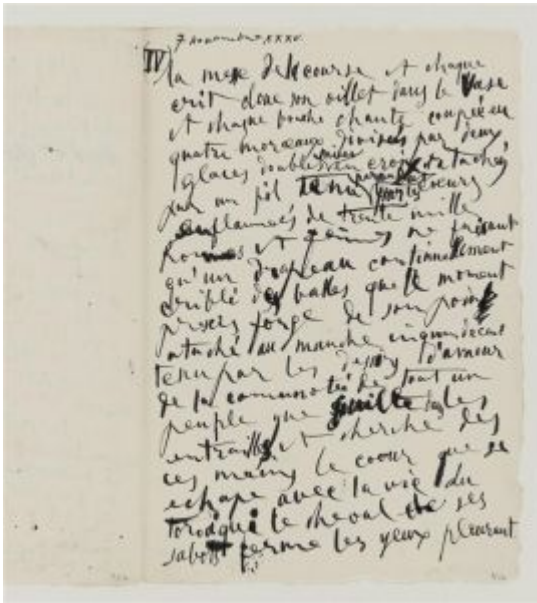 7 novembre XXXV.
(IV)
la mese de la course et chaque
crit done son œillet dans le vase
et chaque bouche chante coupée en
quatre morceaux divisés par deux
glaces doubles en croix atachés
par un fil tenu cœurs
enflammés de trente mille
homes et femmes ne faisant
qu'un drapeau continuellement
criblé des balles que le moment
précis forge de son poin
ataché au manche
tenu par les d'amour
de la comunoté de tout un
peuple que fouille les
entrailles et cherche des
ces mains le coeur que se
echape avec la vie du
toro que le cheval de ses
sabots ferme les yeux pleurant